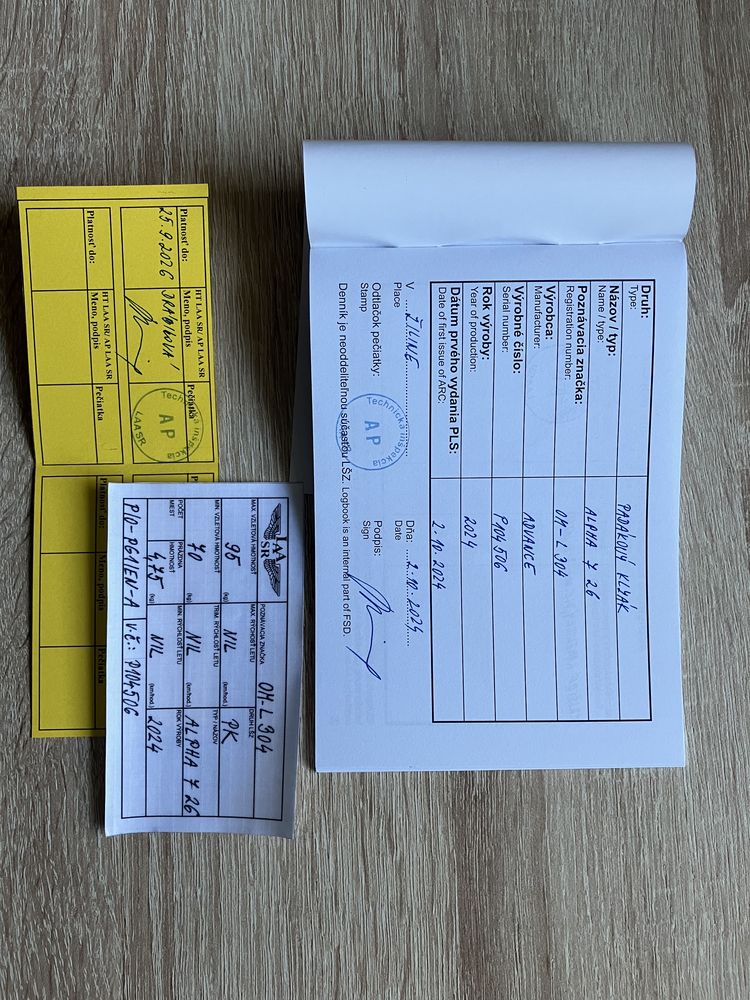 Druh: PADÁKOVÝ KLZÁK
Type:
Názov / typ: ALPHA 7 26
Name / type:
Poznávacia značka: OM-L 304
Registration number:
Výrobca: ADVANCE
Manufacturer:
Výrobné číslo: P104506
Serial number:
Rok výroby: 2024
Year of production:
Dátum prvého vydania PLS: 2.10.2024
Date of first issue of ARC:
V ....ŽILINE
Place
Dňa: ....2.10.2024....
Date
Odtlačok pečiatky:
Stamp
Podpis:
Sign
Technická inšpekcia
AP
Denník je neoddeliteľnou súčasťou LŠZ. Logbook is an internal part of FSD.
Platnosť do:
HT LAA SR/ AP LAA SR
Meno, podpis
Pečiatka
25.9.2026
Technická inšpekcia
AP
LAA SR
Platnosť do:
HT LAA SR/ AP LAA SR
Meno, podpis
Pečiatka
Platnosť do:
Meno, podpis
Pečiatka
LAA
SR
POZNÁVACIA ZNAČKA
OM-L 304
MAX. VZLETOVÁ HMOTNOSŤ
95 (kg)
MAX. RÝCHLOSŤ LETU
NIL (km/hod.)
DRUH LŠZ
PK
MIN. VZLETOVÁ HMOTNOSŤ
70 (kg)
TRIM. RÝCHLOSŤ LETU
NIL (km/hod.)
TYP / NÁZOV
ALPHA 7 26
POČET MIEST
PRÁZDNA HMOTNOSŤ
4,75 (kg)
MIN. RÝCHLOSŤ LETU
NIL (km/hod.)
ROK VÝROBY
2024
V.Č.: P104506